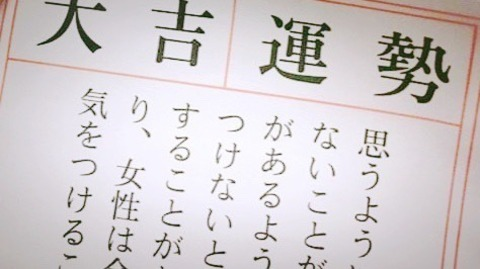 大吉
運勢
思うよう
ないことが
があるよう
つけないと
することが
り、女性は
気をつけるこ